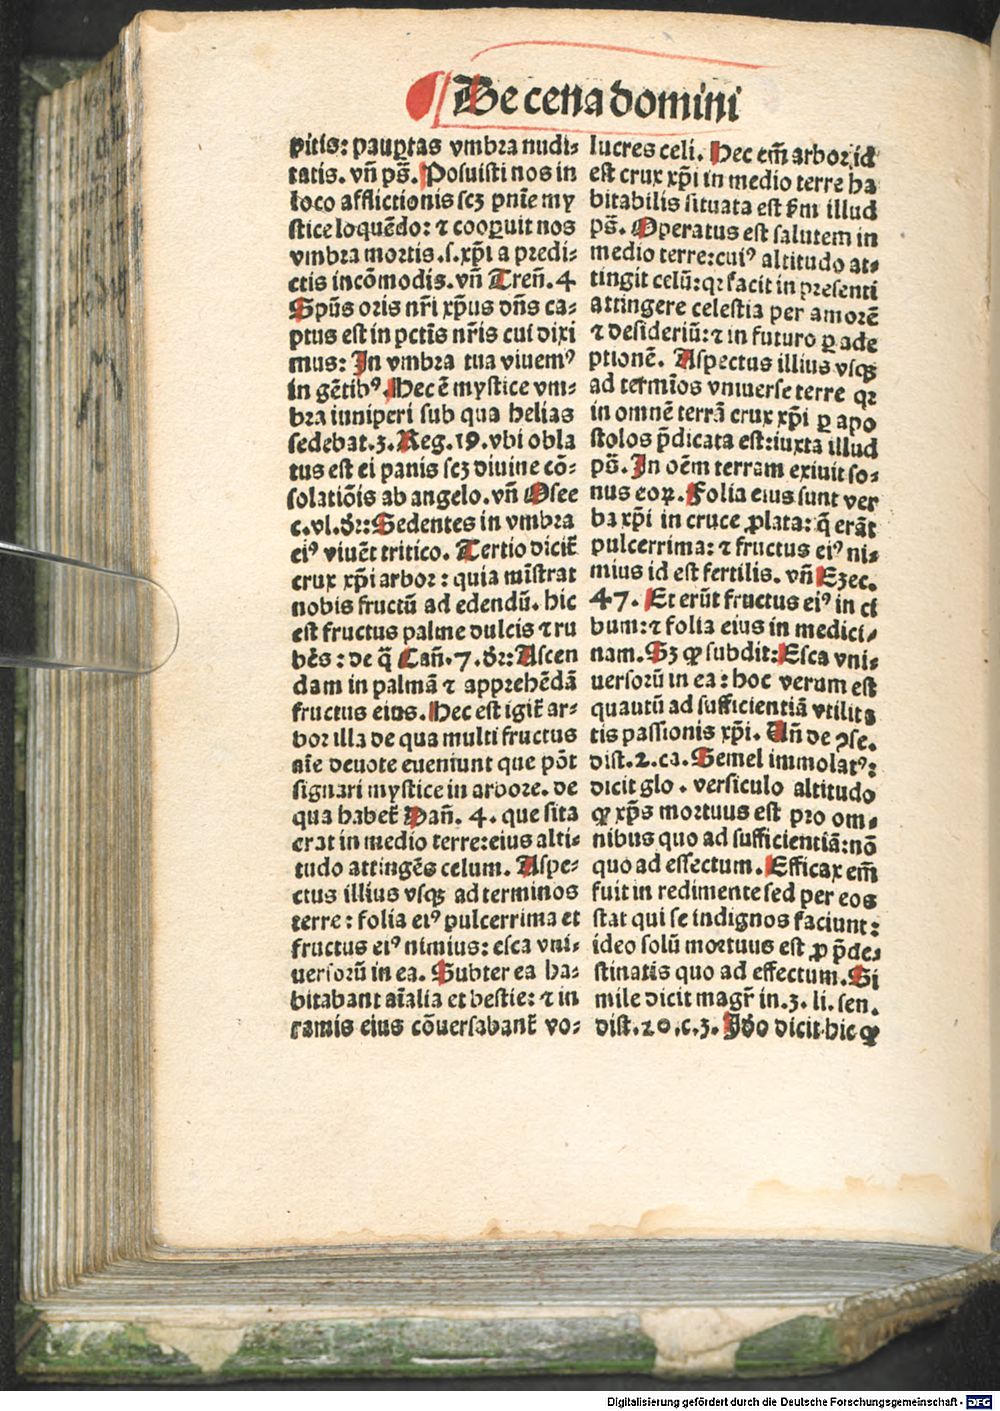 De cena domini
pitis: paup̱tas vmbra nudi-
tatis. vn̄ ps̄. Posuisti nos in
loco afflictionis scꝫ pnīe my
stice loquēdo: ⁊ cooꝑuit nos
vmbra mortis .s. xp̄i a predi-
ctis incōmodis. vn̄ Tren̄. 4
Spūs oris nr̄i xp̄us dn̄s ca-
ptus est in pctīs nr̄is cui dixi
mus: In vmbra tua viuemꝰ
in gētibꝰ. Hec ē mystice vm-
bra iuniperi sub qua helias
sedebat .3. Reg. 19. vbi obla
tus est ei panis scꝫ diuine cō-
solatiōis ab angelo. vn̄ Osee
c. vl. dr̄: Sedentes in vmbra
eiꝰ viuēt tritico. Tertio dicit̄
crux xp̄i arbor: quia mīstrat
nobis fructū ad edendū. hic
est fructus palme dulcis ⁊ ru
bēs: de q̄ Can̄. 7. dr̄: Ascen
dam in palmā ⁊ apprehēdā
fructus eius. Hec est igit̄ ar-
bor illa de qua multi fructus
aīe deuote eueniunt que pōt
signari mystice in arbore. de
qua habet̄ Dan̄. 4. que sita
erat in medio terre: eius alti-
tudo attingēs celum. Aspe-
ctus illius vsqꝫ ad terminos
terre: folia eiꝰ pulcerrima et
fructus eiꝰ nimius: esca vni-
uersorū in ea. Subter ea ha-
bitabant aīalia et bestie: ⁊ in
ramis eius cōuersabant̄ vo-
lucres celi. Hec em̄ arbor id
est crux xp̄i in medio terre ha
bitabilis situata est ẜm illud
ps̄. Operatus est salutem in
medio terre: cuiꝰ altitudo at-
tingit celū: qꝛ facit in presenti
attingere celestia per amorē
⁊ desideriū: ⁊ in futuro ꝑ ade
ptionē. Aspectus illius vsqꝫ
ad termīos vniuerse terre qꝛ
in omnē terrā crux xp̄i ꝑ apo
stolos p̄dicata est: iuxta illud
ps̄. In oēm terram exiuit so-
nus eoꝝ. Folia eius sunt ver
ba xp̄i in cruce ꝓlata: q̄ erāt
pulcerrima: ⁊ fructus eiꝰ ni-
mius id est fertilis. vn̄ Ezec.
47. Et erūt fructus eiꝰ in ci
bum: ⁊ folia eius in medici-
nam. Sꝫ ꝙ subdit: Esca vni-
uersorū in ea: hoc verum est
quantū ad sufficientiā vtilita
tis passionis xp̄i. Vn̄ de ꝯse.
dist. 2. ca. Semel immolatꝰ:
dicit glo. versiculo altitudo
ꝙ xp̄s mortuus est pro om-
nibus quo ad sufficientiā: nō
quo ad effectum. Efficax em̄
fuit in redimente sed per eos
stat qui se indignos faciunt:
ideo solū mortuus est ꝓ p̄de-
stinatis quo ad effectum. Si
mile dicit magr̄ in .3. li. sen.
dist. 20. c. 3. Ido dicit hic ꝙ
Digitalisierung gefördert durch die Deutsche Forschungsgemeinschaft - DFG